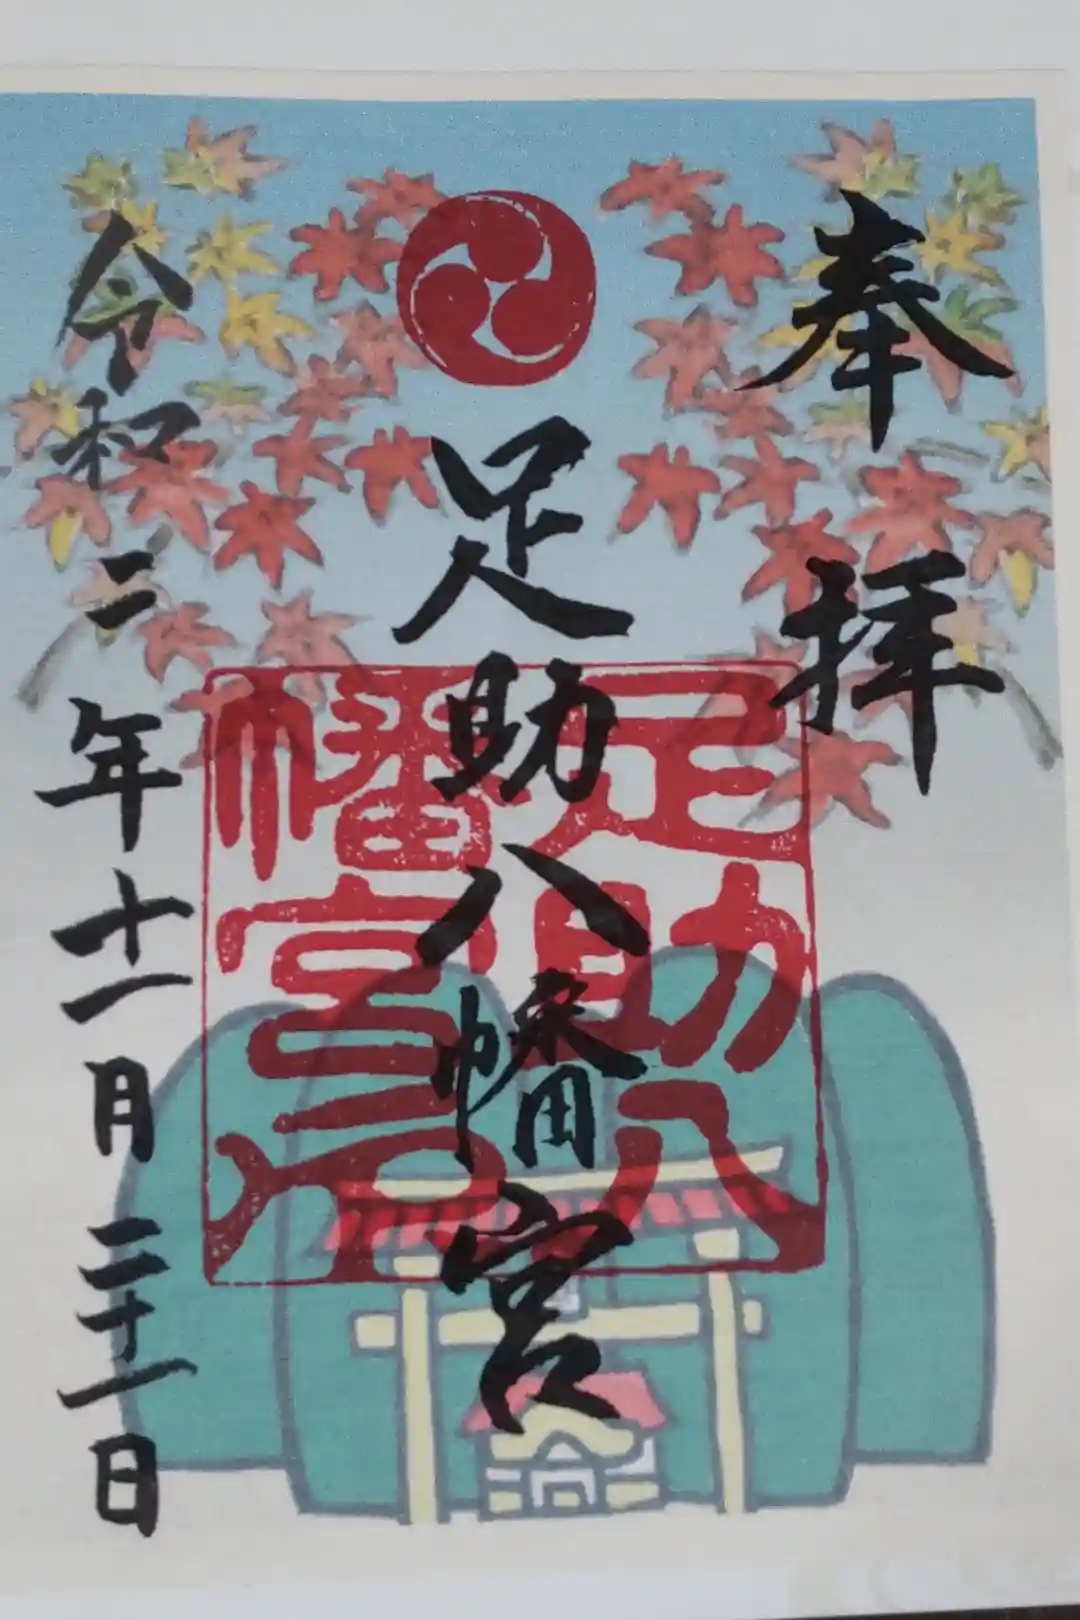 奉拝
足助八幡宮
足助八幡宮印
令和二年十一月二十一日